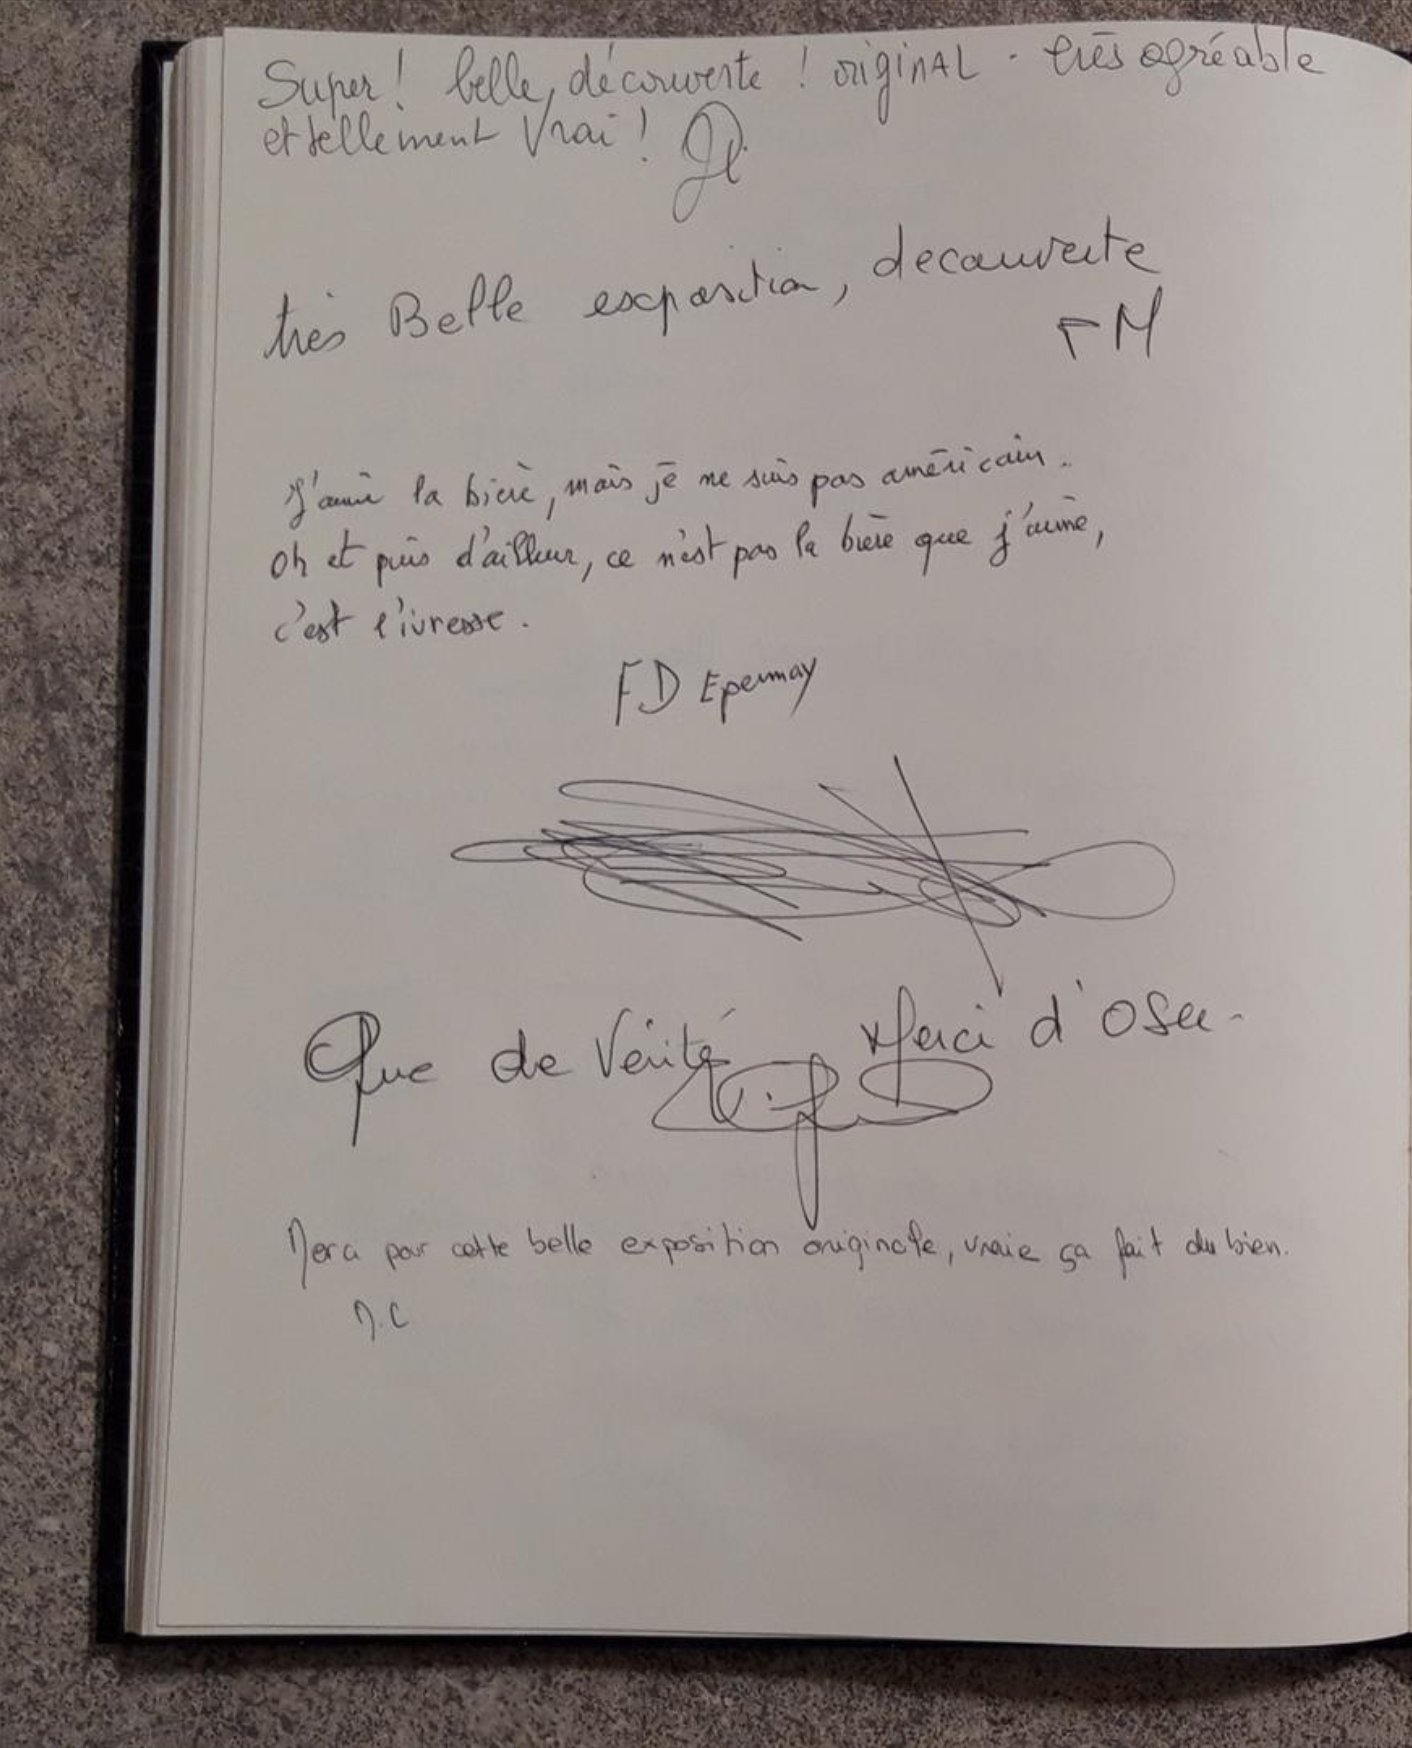 Super! belle, découverte ! originAL - très agréable
et tellement Vrai !
très Belle exposition, decouverte
FM
J'aime la bière, mais je ne suis pas américain.
Oh et puis d'ailleur, ce n'est pas la bière que j'aime,
c'est l'ivresse.
FD Epernay
Que de Vérité Merci d'Oser-
Merci pour cette belle exposition originale, vraie ça fait du bien.
M.C